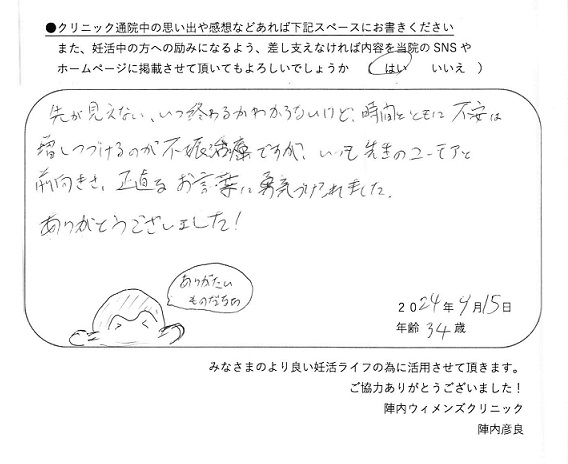 ●クリニック通院中の思い出や感想などあれば下記スペースにお書きください
また、妊活中の方への励みになるよう、差し支えなければ内容を当院のSNSや
ホームページに掲載させて頂いてもよろしいでしょうか （ はい いいえ ）
先が見えない、いつ終わるかわからないけど、時間とともに不安は
増しつづけるのが不妊治療ですが、いつも先生のユーモアと
前向きさ、正直なお言葉に勇気づけられました。
ありがとうございました！
ありがたい
ものだなあ
2024年9月15日
年齢 34歳
みなさまのより良い妊活ライフの為に活用させて頂きます。
ご協力ありがとうございました！
陣内ウィメンズクリニック
陣内彦良